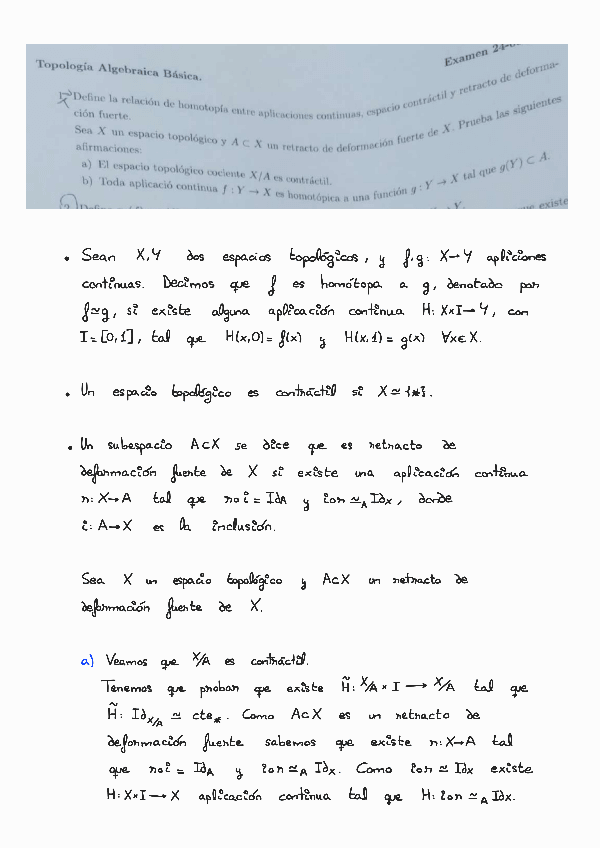 Topología Algebraica Básica.
Examen 24-
1. Define la relación de homotopía entre aplicaciones continuas, espacio contráctil y retracto de deforma-
ción fuerte.
Sea X un espacio topológico y A ⊂ X un retracto de deformación fuerte de X. Prueba las siguientes
afirmaciones:
a) El espacio topológico cociente X/A es contráctil.
b) Toda aplicació continua f : Y → X es homotópica a una función g : Y → X tal que g(Y) ⊂ A.
que existe
• Sean X,Y dos espacios topológicos, y f,g: X→Y apliciones
continuas. Decimos que f es homótopa a g, denotado por
f≃g, si existe alguna aplicación continua H: X×I→Y, con
I=[0,1], tal que H(x,0)=f(x) y H(x,1)=g(x) ∀x∈X.
• Un espacio topológico es contráctil si X≃{*}.
• Un subespacio A⊂X se dice que es retracto de
deformación fuerte de X si existe una aplicación continua
r: X→A tal que r∘i=Id_A y i∘r ≃_A Id_X, donde
i: A→X es la inclusión.
Sea X un espacio topológico y A⊂X un retracto de
deformación fuerte de X.
a) Veamos que X/A es contráctil.
Tenemos que probar que existe H̃: X/A × I → X/A tal que
H̃: Id_{X/A} ≃ cte_*. Como A⊂X es un retracto de
deformación fuerte sabemos que existe r: X→A tal
que r∘i = Id_A y i∘r ≃_A Id_X. Como i∘r ≃ Id_X existe
H: X×I→X aplicación continua tal que H: i∘r ≃_A Id_X.